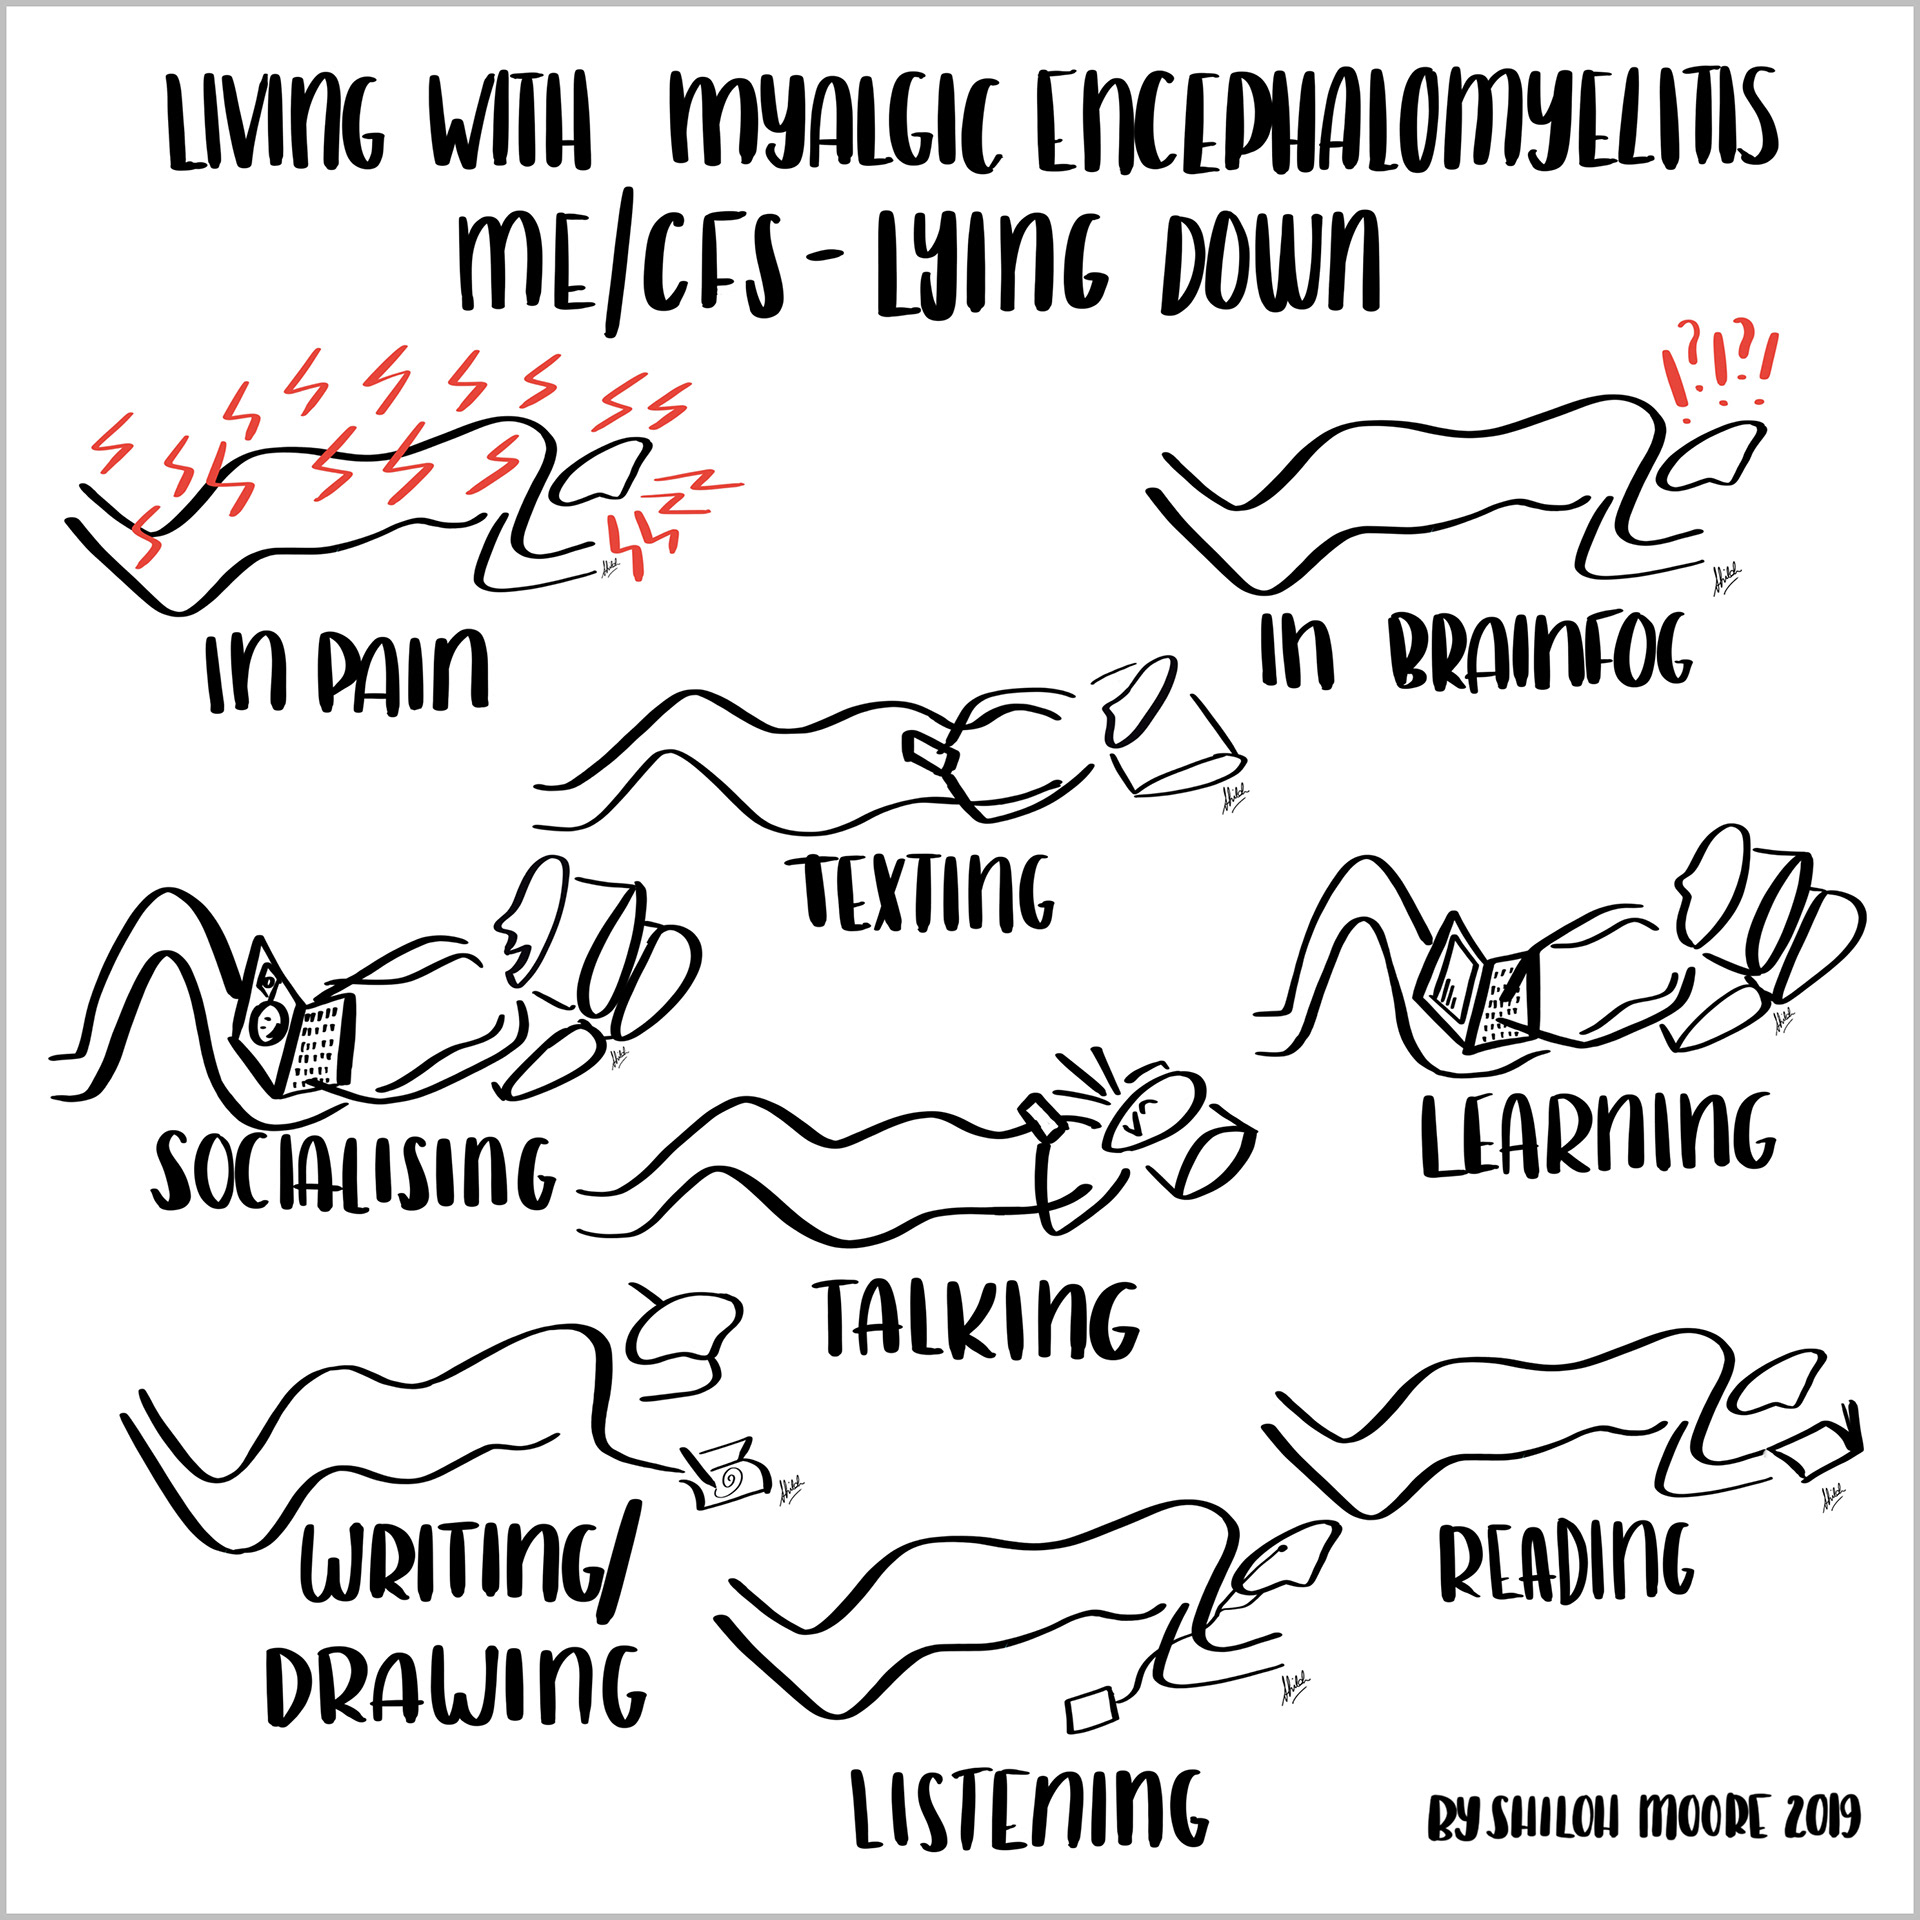 LIVING WITH MYALGIC ENCEPHALOMYELITIS
ME/CFS - LYING DOWN
!?!?!
Shiloh
IN PAIN
Shiloh
IN BRAINFOG
Shiloh
TEXTING
Shiloh
SOCIALISING
Shiloh
LEARNING
TALKING
Shiloh
WRITING/
DRAWING
Shiloh
READING
Shiloh
LISTENING
BY SHILOH MOORE 2019